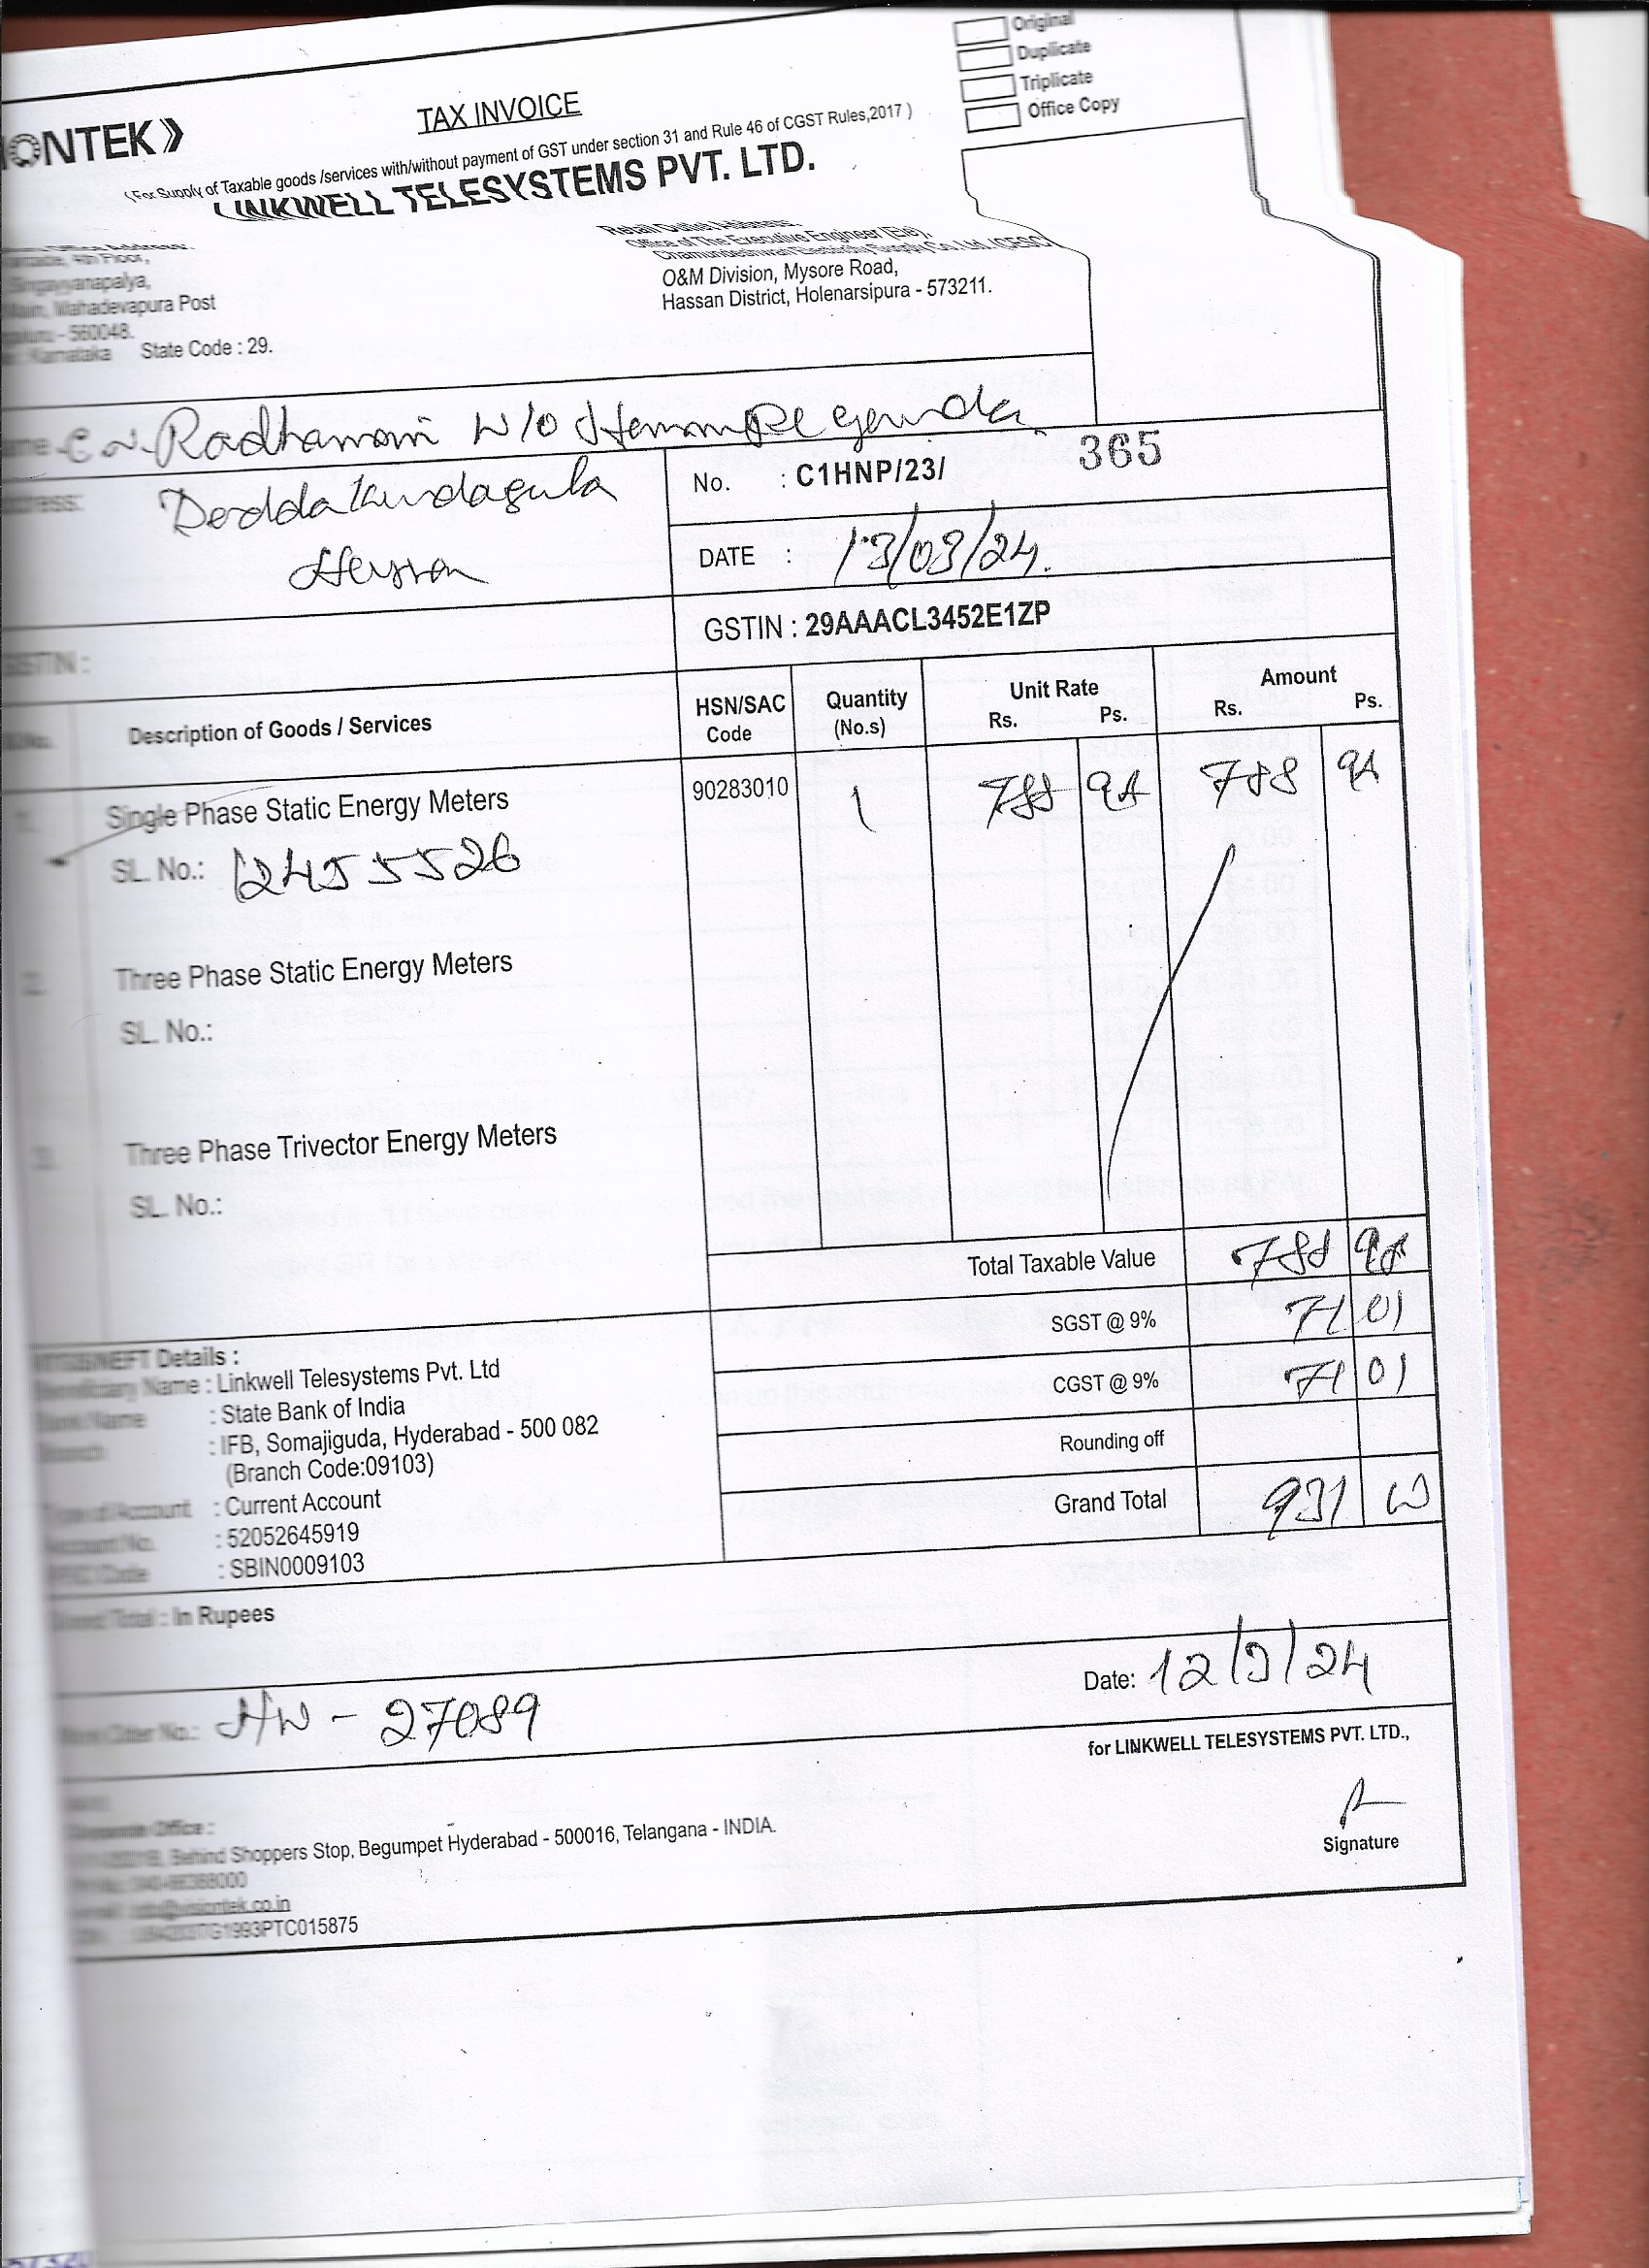 Original
Duplicate
Triplicate
Office Copy
TAX INVOICE
(For Supply of Taxable goods /services with/without payment of GST under section 31 and Rule 46 of CGST Rules,2017 )
IONTEK
LINKWELL TELESYSTEMS PVT. LTD.
Retail Outlet Address:
Office of The Executive Engineer (Ele),
Chamundeshwari Electricity Supply Co. Ltd. (CESC)
O&M Division, Mysore Road,
Hassan District, Holenarsipura - 573211.
4th Floor,
Singayyanapalya,
Main, Mahadevapura Post
- 560048.
Karnataka State Code : 29.
C N Radhamani W/o Hemmpe gowda
Dodda Kundagula
Hassan
No. : C1HNP/23/ 365
DATE : 13/03/24.
GSTIN : 29AAACL3452E1ZP
GSTIN :
Description of Goods / Services
HSN/SAC Code
Quantity (No.s)
Unit Rate Rs. Ps.
Amount Rs. Ps.
Single Phase Static Energy Meters 90283010 1 788 98 788 98
SL. No.: 12455526
Three Phase Static Energy Meters
SL. No.:
Three Phase Trivector Energy Meters
SL. No.:
Total Taxable Value 788 98
SGST @ 9% 71 01
CGST @ 9% 71 01
Rounding off
Grand Total 931 00
RTGS/NEFT Details :
Beneficiary Name : Linkwell Telesystems Pvt. Ltd
Bank Name : State Bank of India
Branch : IFB, Somajiguda, Hyderabad - 500 082
(Branch Code:09103)
Type of Account : Current Account
Account No. : 52052645919
IFSC Code : SBIN0009103
Grand Total : In Rupees
No.: HW - 27089
Date: 12/3/24
for LINKWELL TELESYSTEMS PVT. LTD.,
Signature
Office :
Behind Shoppers Stop, Begumpet Hyderabad - 500016, Telangana - INDIA.
info@visiontek.co.in
TG1993PTC015875